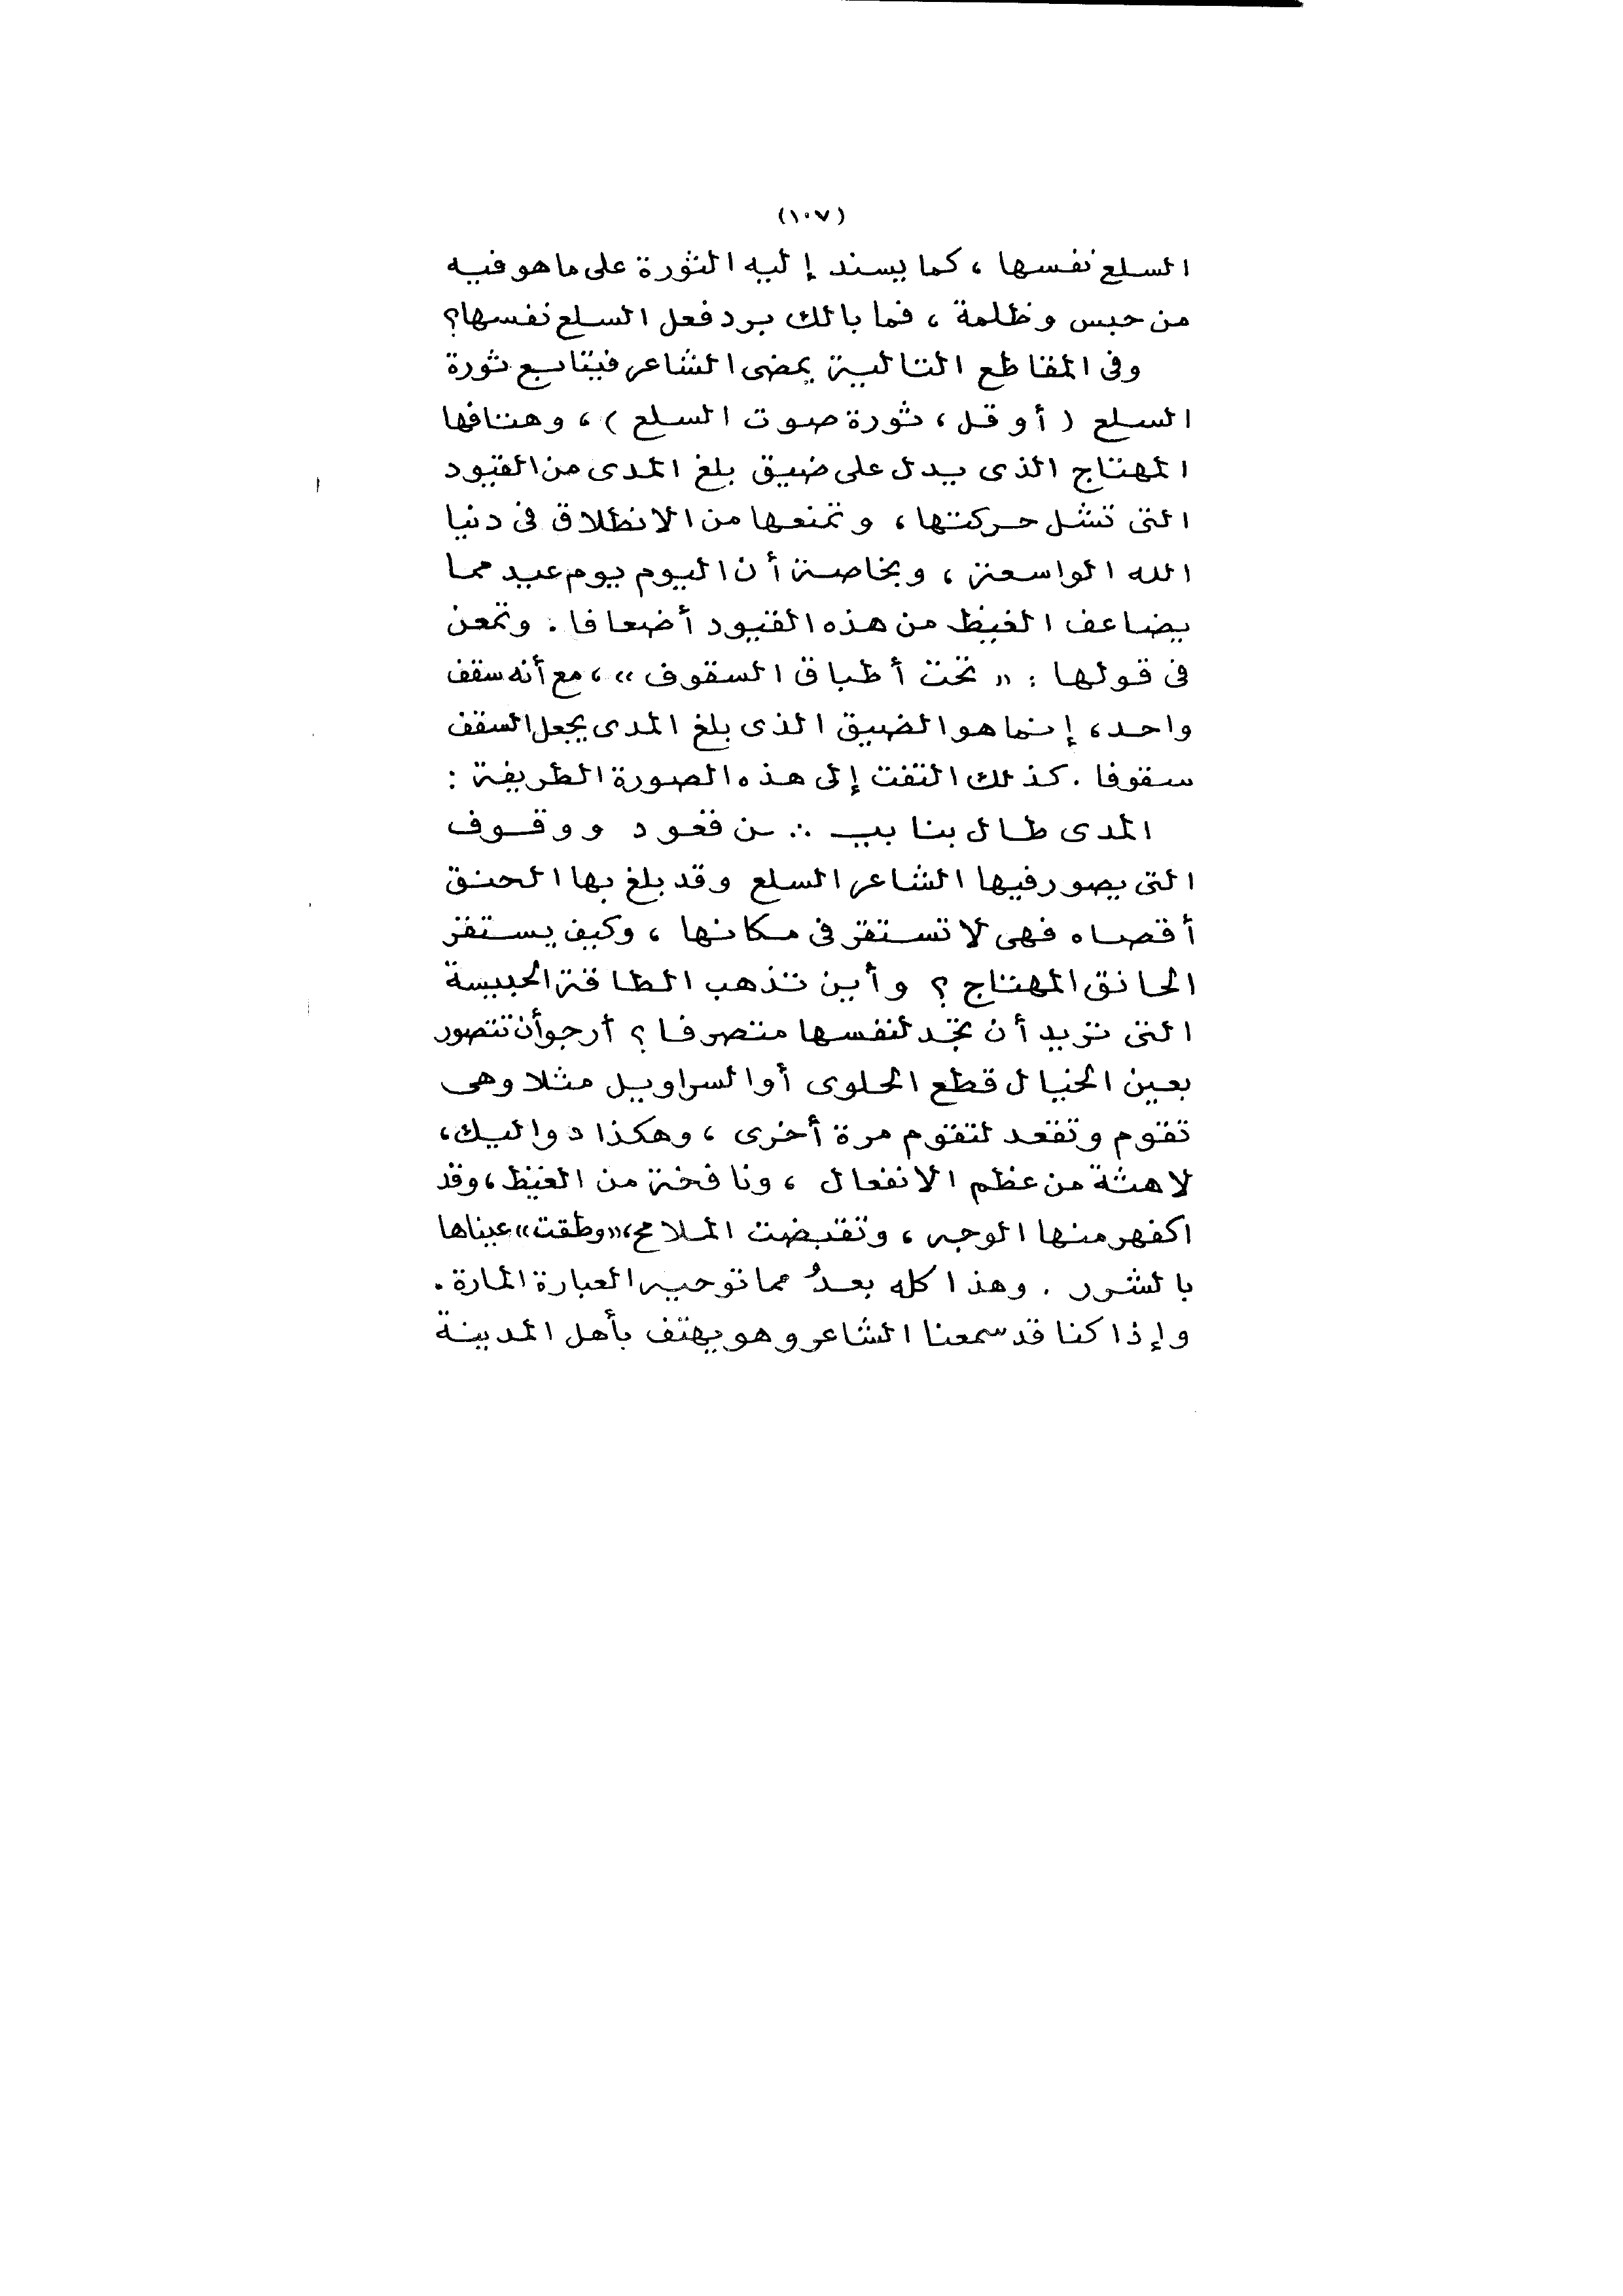 (١٠٧)
السلع نفسها ، كما يسند إليه الثورة على ما هو فيه
من حبس وظلمة ، فما بالك برد فعل السلع نفسها؟
وفى المقاطع التالية يمضى الشاعر فيتابع ثورة
السلع ( أو قل ، ثورة صوت السلع ) ، وهتافها
المهتاج الذى يدل على ضيق بلغ المدى من القيود
التى تشل حركتها ، وتمنعها من الانطلاق فى دنيا
الله الواسعة ، وبخاصة أن اليوم يوم عيد مما
يضاعف الغيظ من هذه القيود أضعافا . وتمعن
فى قولها : « تحت أطباق السقوف » ، مع أنه سقف
واحد ، إنما هو الضيق الذى بلغ المدى يجعل السقف
سقوفا . كذلك التفت إلى هذه الصورة الطريفة :
المدى طال بنا بيـ ∴ ـن قعود ووقوف
التى يصور فيها الشاعر السلع وقد بلغ بها الحنق
أقصاه فهى لا تستقر فى مكانها ، وكيف يستقر
الحانق المهتاج ؟ وأين تذهب الطاقة الحبيسة
التى تريد أن تجد لنفسها متصرفا ؟ أرجو أن تتصور
بعين الخيال قطع الحلوى أو السراويل مثلا وهى
تقوم وتقعد لتقوم مرة أخرى ، وهكذا دواليك ،
لاهثة من عظم الانفعال ، ونافخة من الغيظ ، وقد
اكفهر منها الوجه ، وتقبضت الملامح ، «وطقت» عيناها
بالشرر . وهذا كله بعدُ مما توحيه العبارة المارة .
وإذا كنا قد سمعنا الشاعر وهو يهتف بأهل المدينة